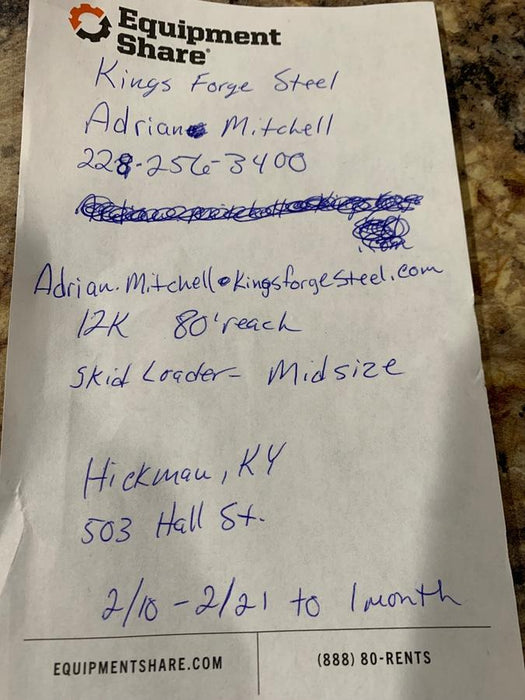 Equipment
Share
Kings Forge Steel
Adrian Mitchell
228-256-3400
.com
Adrian.Mitchell@KingsforgeSteel.com
12K 80' reach
Skid Loader - Midsize
Hickman, KY
503 Hall St.
2/10 - 2/21 to 1 month
EQUIPMENTSHARE.COM
(888) 80-RENTS